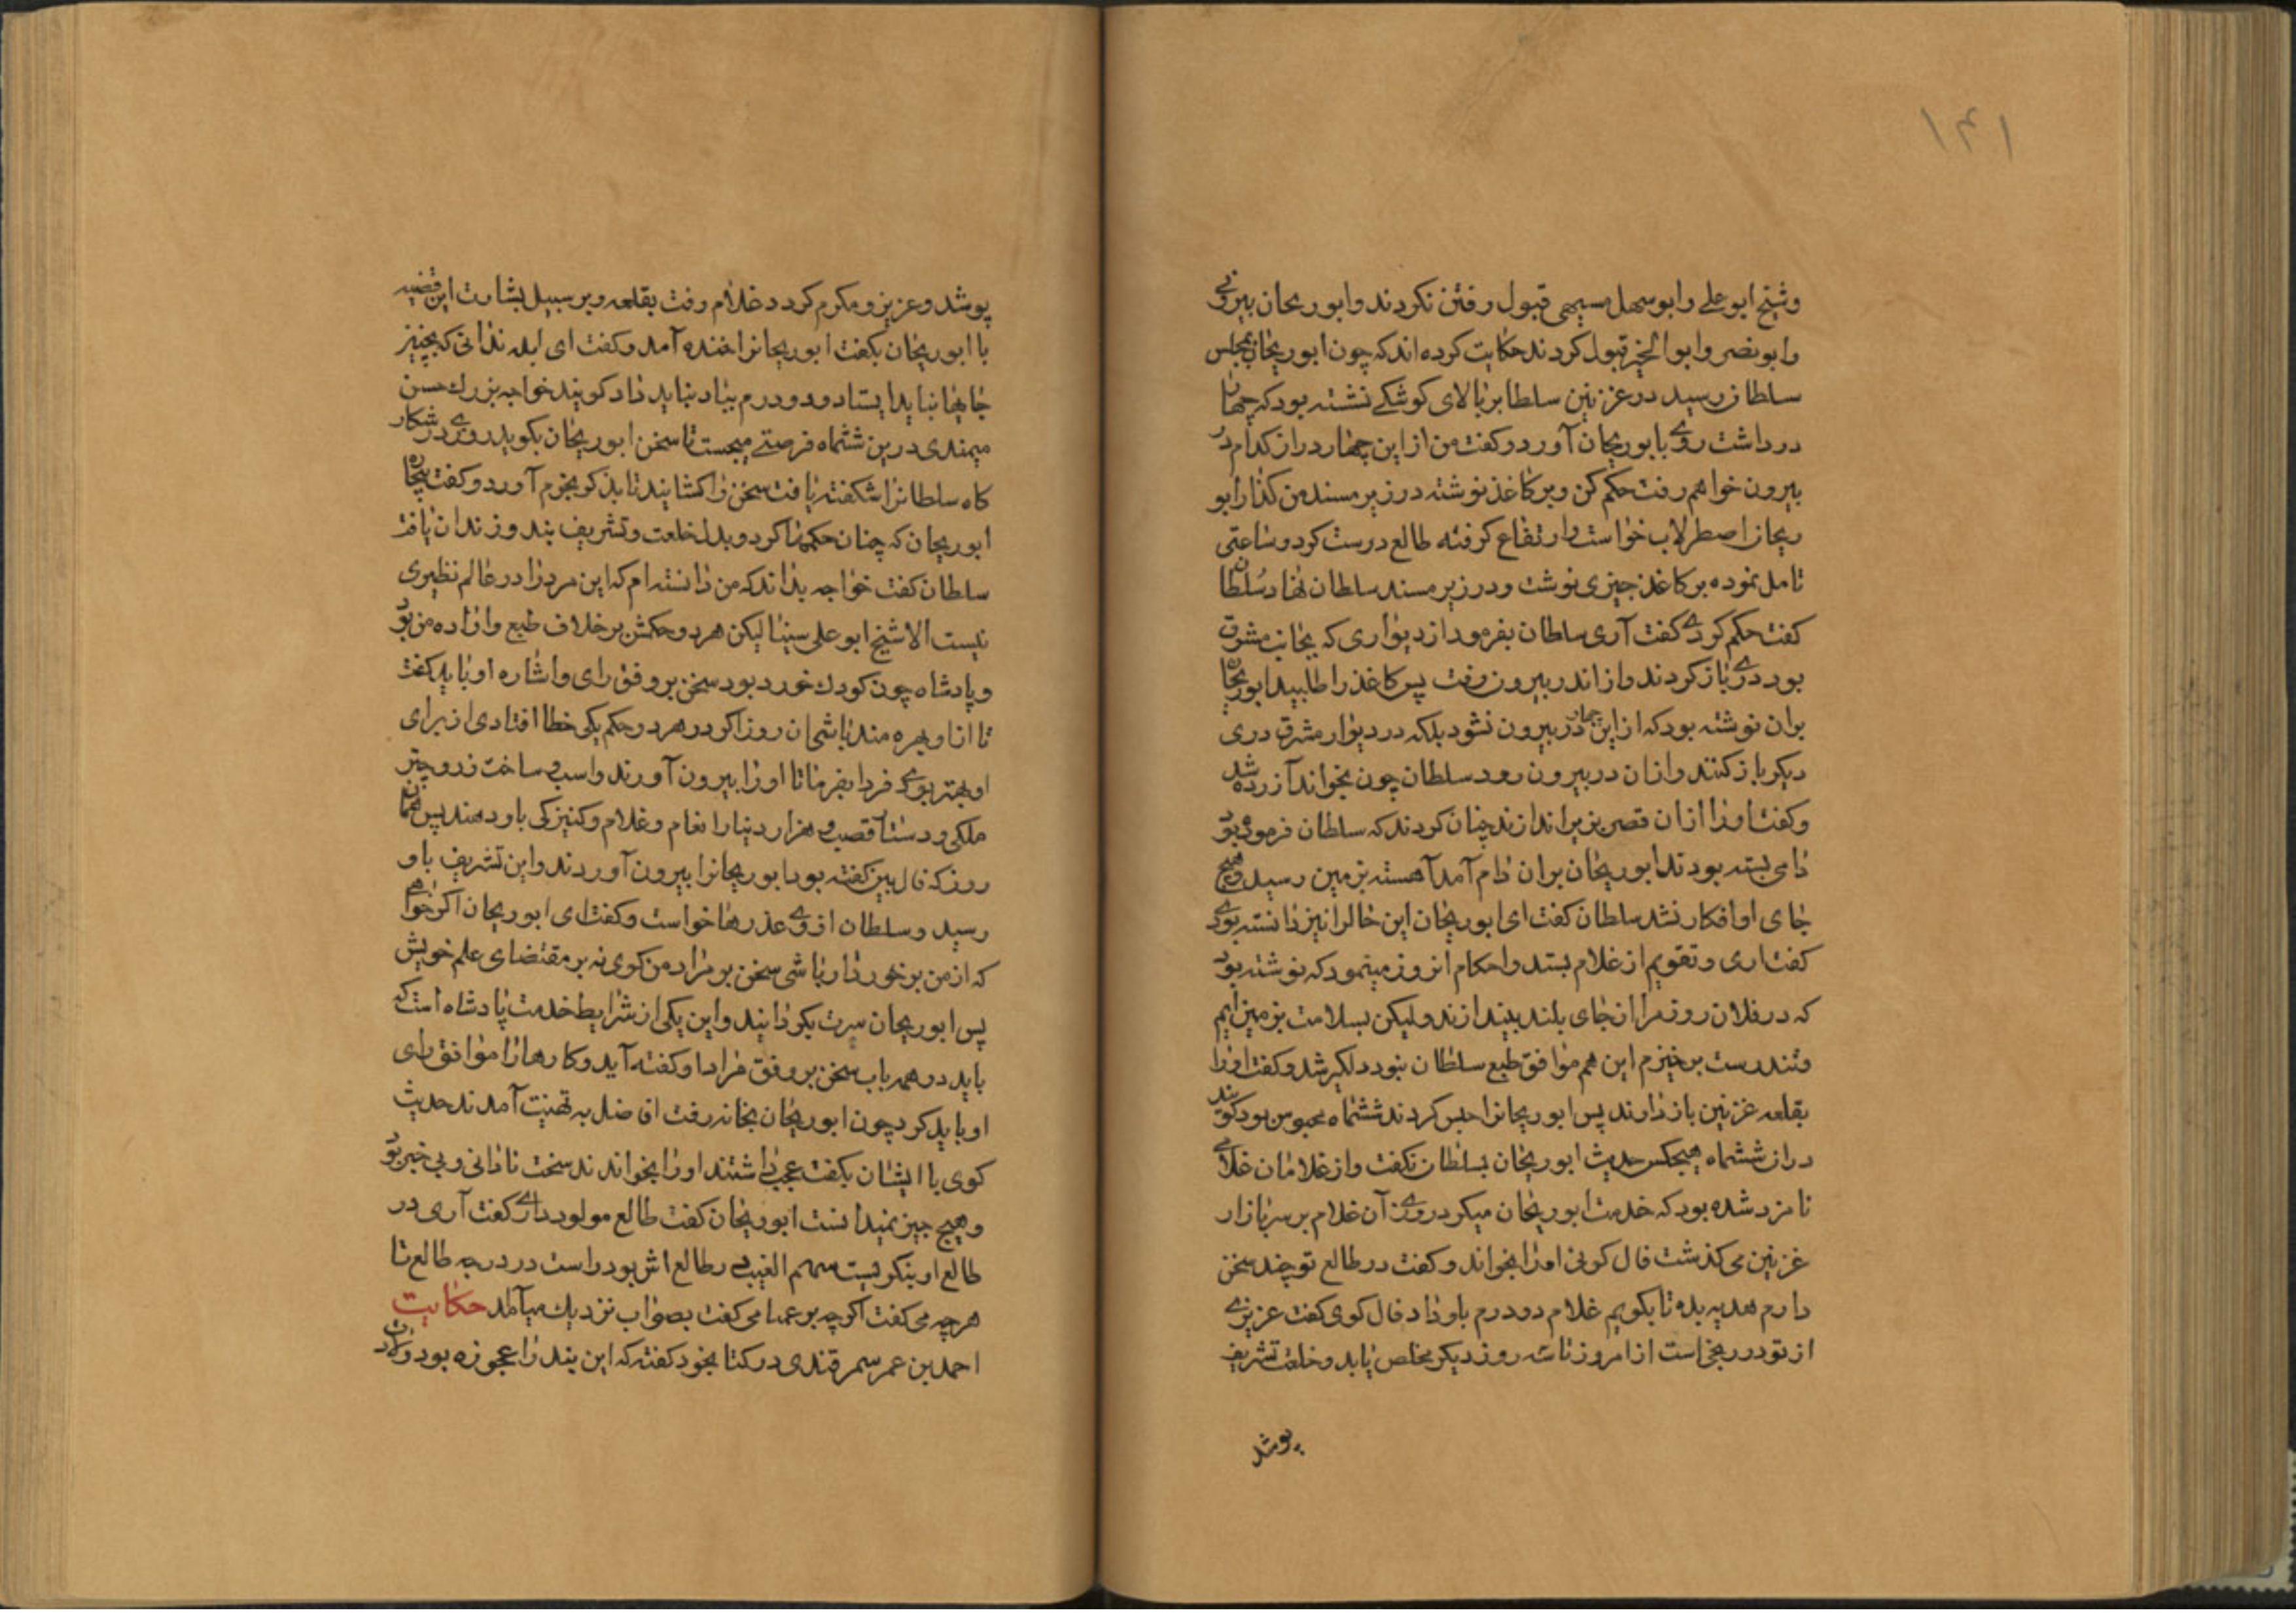 ۱۴۱
وشیخ ابوعلے وابوسهل مسیحی قبول رفتن نکردند وابوریحان بیرونے
وابونصر وابوالخیر قبول کردند حکایت کرده اند که چون ابوریحان بمجلس
سلطان رسید در غزنین سلطا بر بالای کوشکے نشسته بود که چهار
در داشت روے بابوریحان آورد وکفت من از این چهار در از کدام در
بیرون خواهم رفت حکم کن وبر کاغذ نوشته در زیر مسند من کذار ابو
ریحان اصطرلاب خواست وارتفاع کرفته طالع درست کرد وساعتی
تامل نموده بر کاغذ چیزی نوشت ودر زیر مسند سلطان نهاد سلطان
کفت حکم کردے کفت آری سلطان بفرمود از دیواری که بجانب مشرق
بود درے باز کردند واز اندر بیرون رفت پس کاغذ را طلبید ابوریحان
بران نوشته بود که از این چهار در بیرون نشود بلکه در دیوار مشرق دری
دیکر باز کنند وازان در بیرون رود سلطان چون بخواند آزرده شد
وکفت اورا ازان قصر بزیر اندازند چنان کردند که سلطان فرموده بود
دامی بسته بودند ابوریحان بران دام آمد آهسته بزمین رسید وهیچ
جای او افکار نشد سلطان کفت ای ابوریحان این حالرا نیز دانسته بودے
کفت اری وتقویم از غلام بستد واحکام انروز مینمود که نوشته بود
که در فلان روز مرا از جای بلند بیندازند ولیکن بسلامت بزمین ایم
وتندرست برخیزم این هم موافق طبع سلطان نبود دلکیر شد وکفت اورا
بقلعه غزنین باز دارند پس ابوریحانرا حبس کردند ششماه محبوس بود کویند
دران ششماه هیچکس حدیث ابوریحان بسلطان نکفت واز غلامان غلامے
نامزد شده بود که خدمت ابوریحان میکرد روزے آن غلام بر سر بازار
غزنین می کذشت فال کوئی اورا بخواند وکفت در طالع تو چند سخن
دارم هدیه بده تا بکویم غلام دو درم باو داد فال کوی کفت عزیزے
از تو در رنج است از امروز تا سه روز دیکر مخلص یابد وخلعت تشریف
پوشد
پوشد وعزیز ومکرم کردد غلام رفت بقلعه وبر سبیل بشارت این قضیه
با ابوریحان بکفت ابوریحانرا خنده آمد وکفت ای ابله ندانی که بچنین
جایها نباید ایستاد ودو درم بیاد نباید داد کویند خواجه بزرك حسن
میمندی درین ششماه فرصتے میجست تا سخن ابوریحان بکوید روزے در شکار
کاه سلطانرا شکفته یافت سخن را کشانید تا بذکر نجوم آورد وکفت بیچاره
ابوریحان که چنان حکمها کرد وبدل خلعت وتشریف بند وزندان یافت
سلطان کفت خواجه بداند که من دانسته ام که این مردرا در عالم نظیری
نیست الا شیخ ابوعلی سینا لیکن هر دو حکمش بر خلاف طبع واراده من بود
وپادشاه چون کودك خورد بود سخن بر وفق رای واشاره او باید کفت
تا از او بهره مند باشی ان روز اکر در هر دو حکم یکی خطا افتادی از برای
او بهتر بودے فردا بفرما تا اورا بیرون آورند واسب وساخت زر وجبه
ملکی ودستار قصب وهزار دینار انعام وغلام وکنیزکی باو دهند پس همان
روز که فال بین کفته بود ابوریحانرا بیرون آوردند واین تشریف باو
رسید وسلطان ازوے عذرها خواست وکفت ای ابوریحان اکر خواهی
که از من برخوردار باشی سخن بر مراد من کوی نه بر مقتضای علم خویش
پس ابوریحان سرت بکردانید واین یکی از شرایط خدمت پادشاه است که
باید در همه باب سخن بر وفق مراد او کفته آید وکارهارا موافق رای
او باید کرد چون ابوریحان بخانه رفت افاضل به تهنیت آمدند حدیث
کوی با ایشان بکفت عجب داشتند اورا بخواندند سخت نادانی وبی خبر بود
وهیچ چیز نمیدانست ابوریحان کفت طالع مولود دارے کفت آری در
طالع او بنکریست سهم الغیب در طالع اش بود راست در درجه طالع تا
هرچه می کفت اکرچه بر عمیا می کفت بصواب نزدیك میآمد حکایت
احمد بن عمر سمرقندی در کتاب خود کفته که این بنده را عجوزه بود ولادت